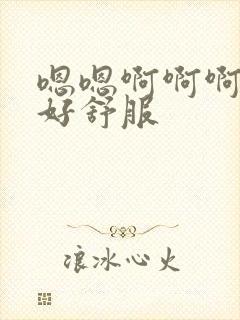 嗯嗯啊啊啊
好舒服
浪冰心火